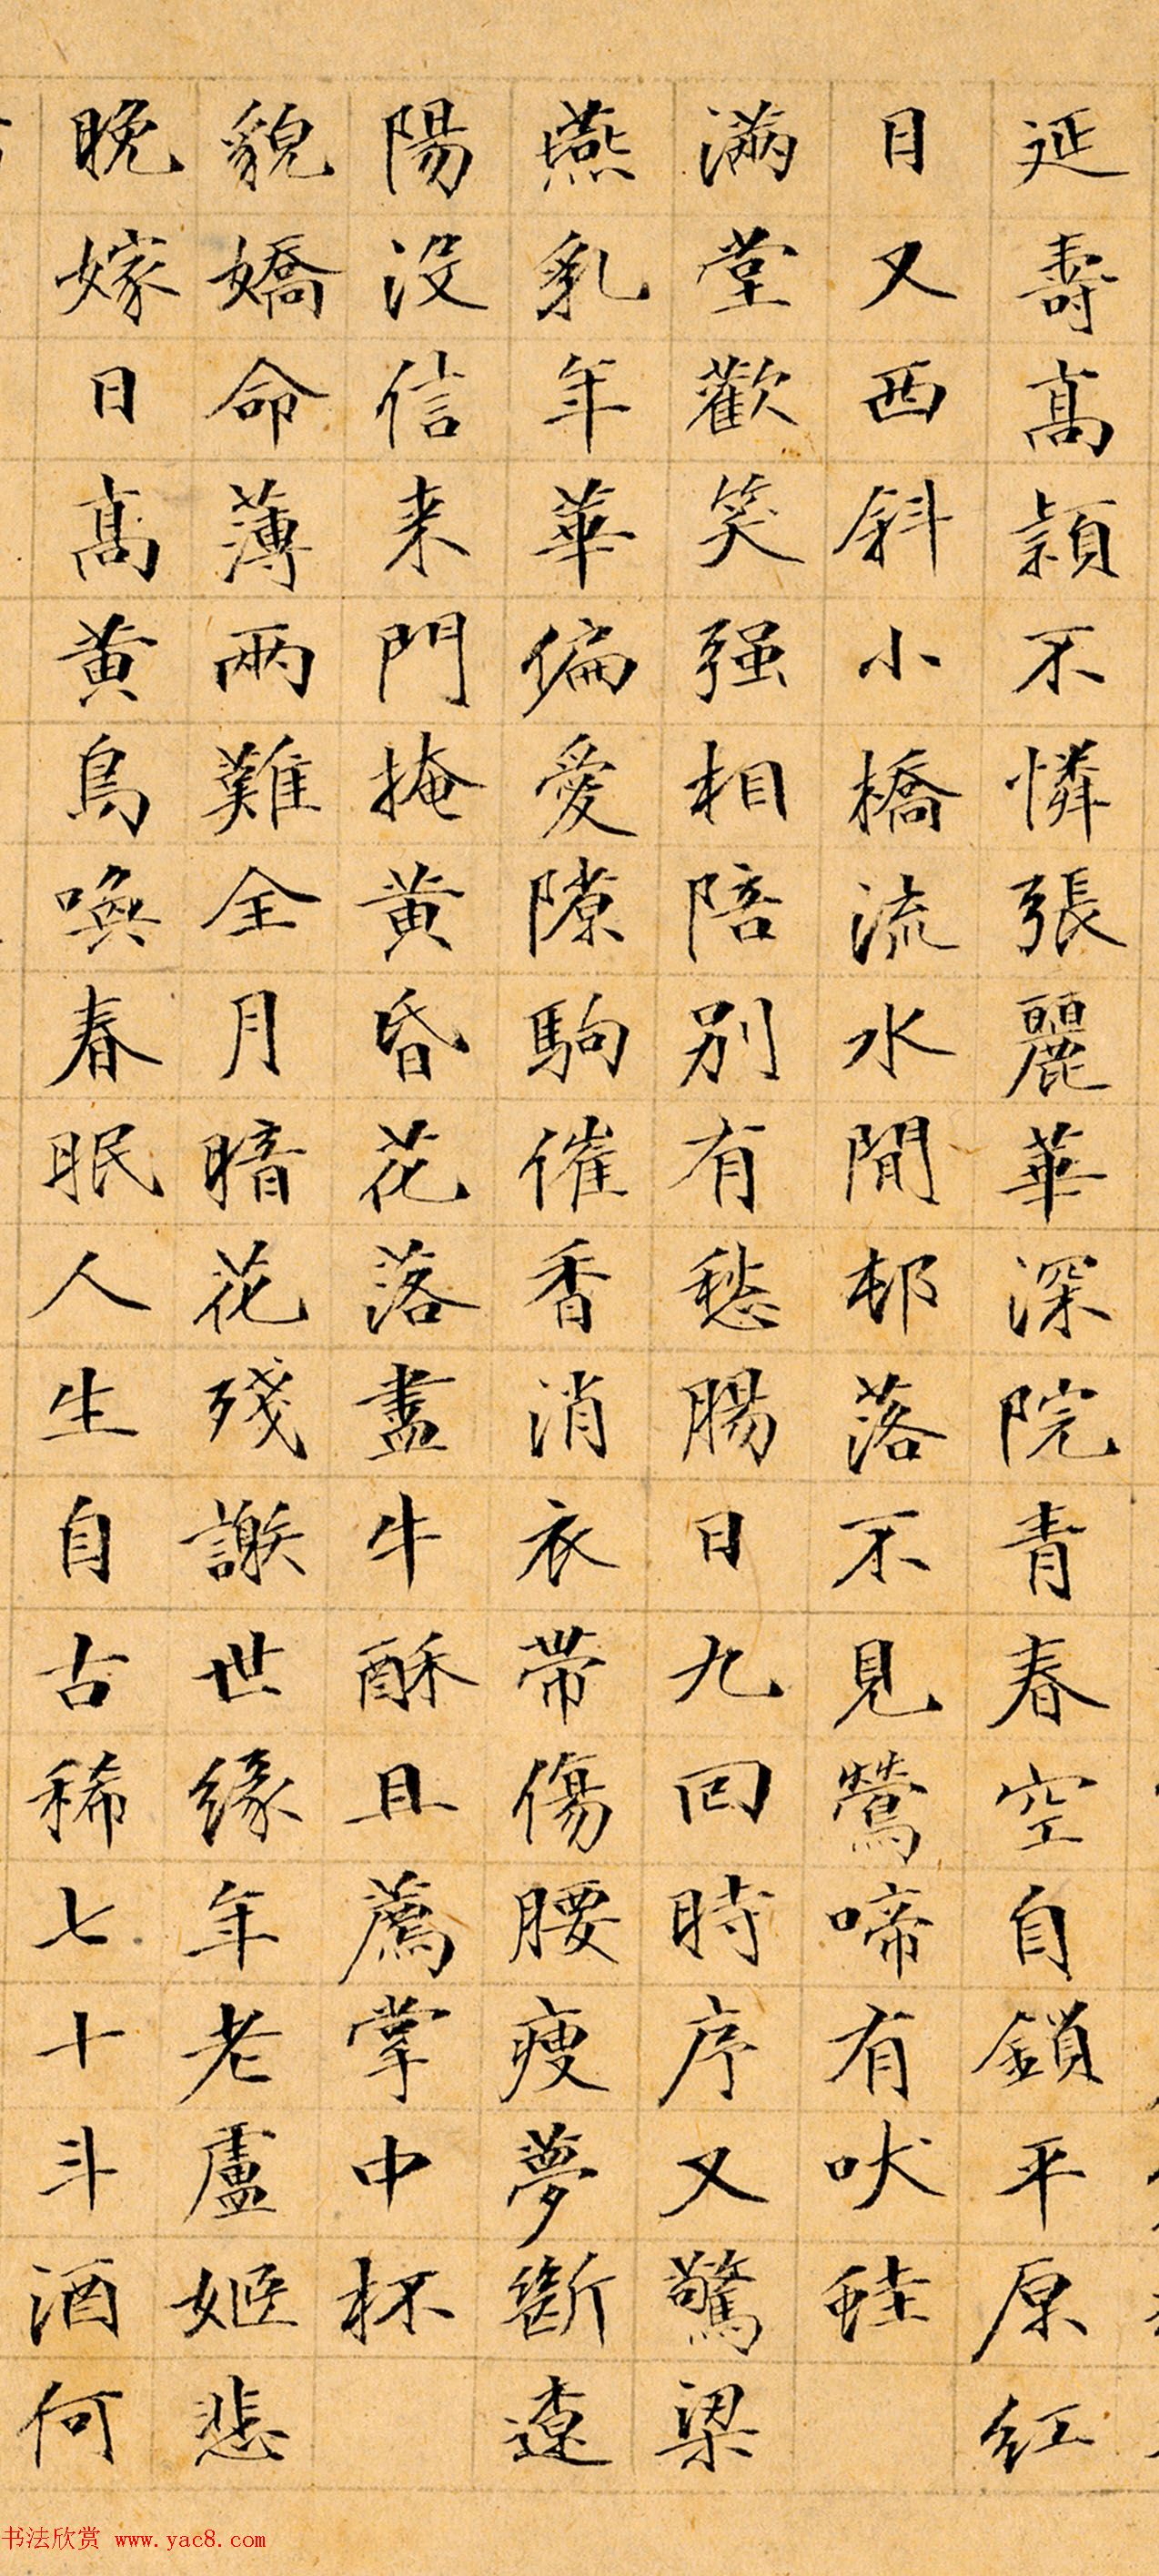 延壽高潁不憐張麗華深院青春空自鎖平原紅
日又西斜小橋流水閒邨落不見鶯啼有吠蛙
滿堂歡笑强相陪別有愁腸日九回時序又驚梁
燕乳年華偏愛隙駒催香消衣帶傷腰瘦夢斷遼
陽沒信来門掩黄昏花落盡牛酥且薦掌中杯
貌嬌命薄兩難全月暗花殘謝世緣年老盧姬悲
晚嫁日高黄鳥喚春眠人生自古稀七十斗酒何
书法欣赏 www.yac8.com